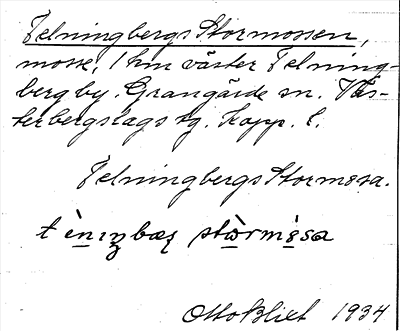 Telningbergs Stormossen,
mosse, 1 km väster Telning-
berg by. Grangärde sn. Väs-
terbergslags tg. Kopp. l.
Telningbergs Stormosa.
Otto Blixt 1934